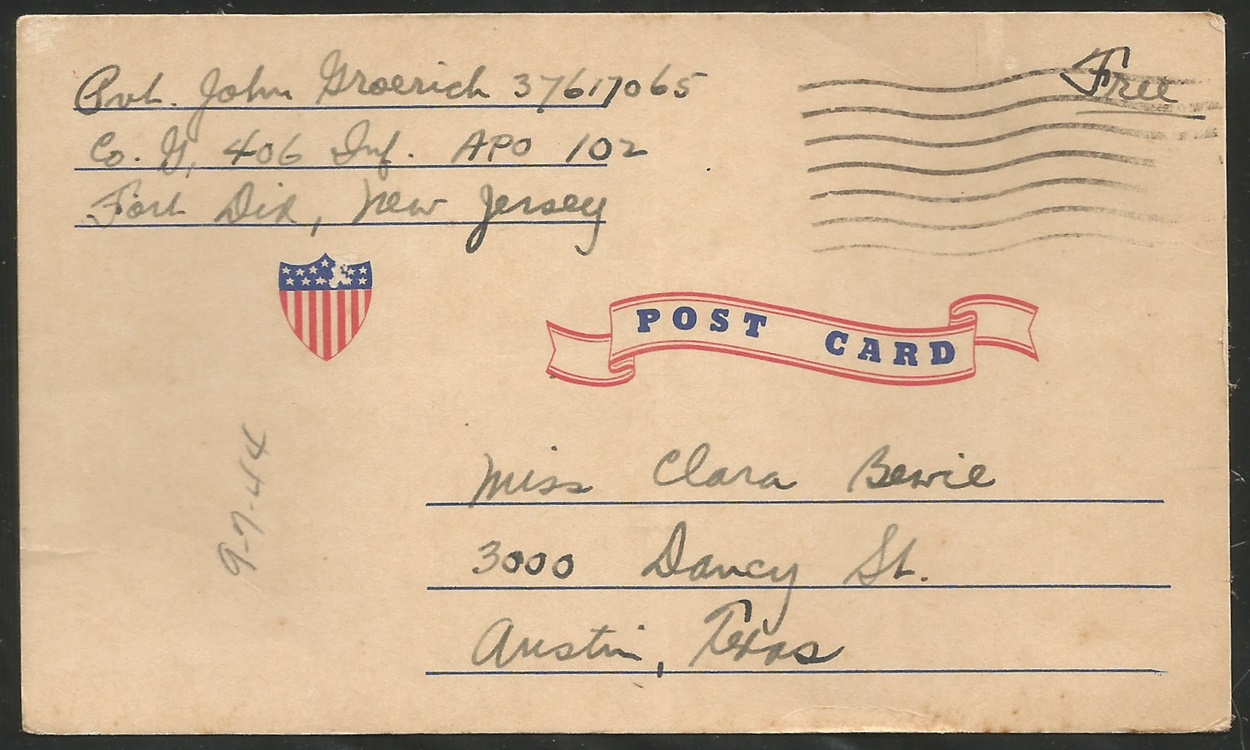 Pvt. John Groerich 37617065
Free
Co. G, 406 Inf. APO 102
Fort Dix, New Jersey
POST CARD
9-7-44
Miss Clara Bewie
3000 Dancy St.
Austin, Texas